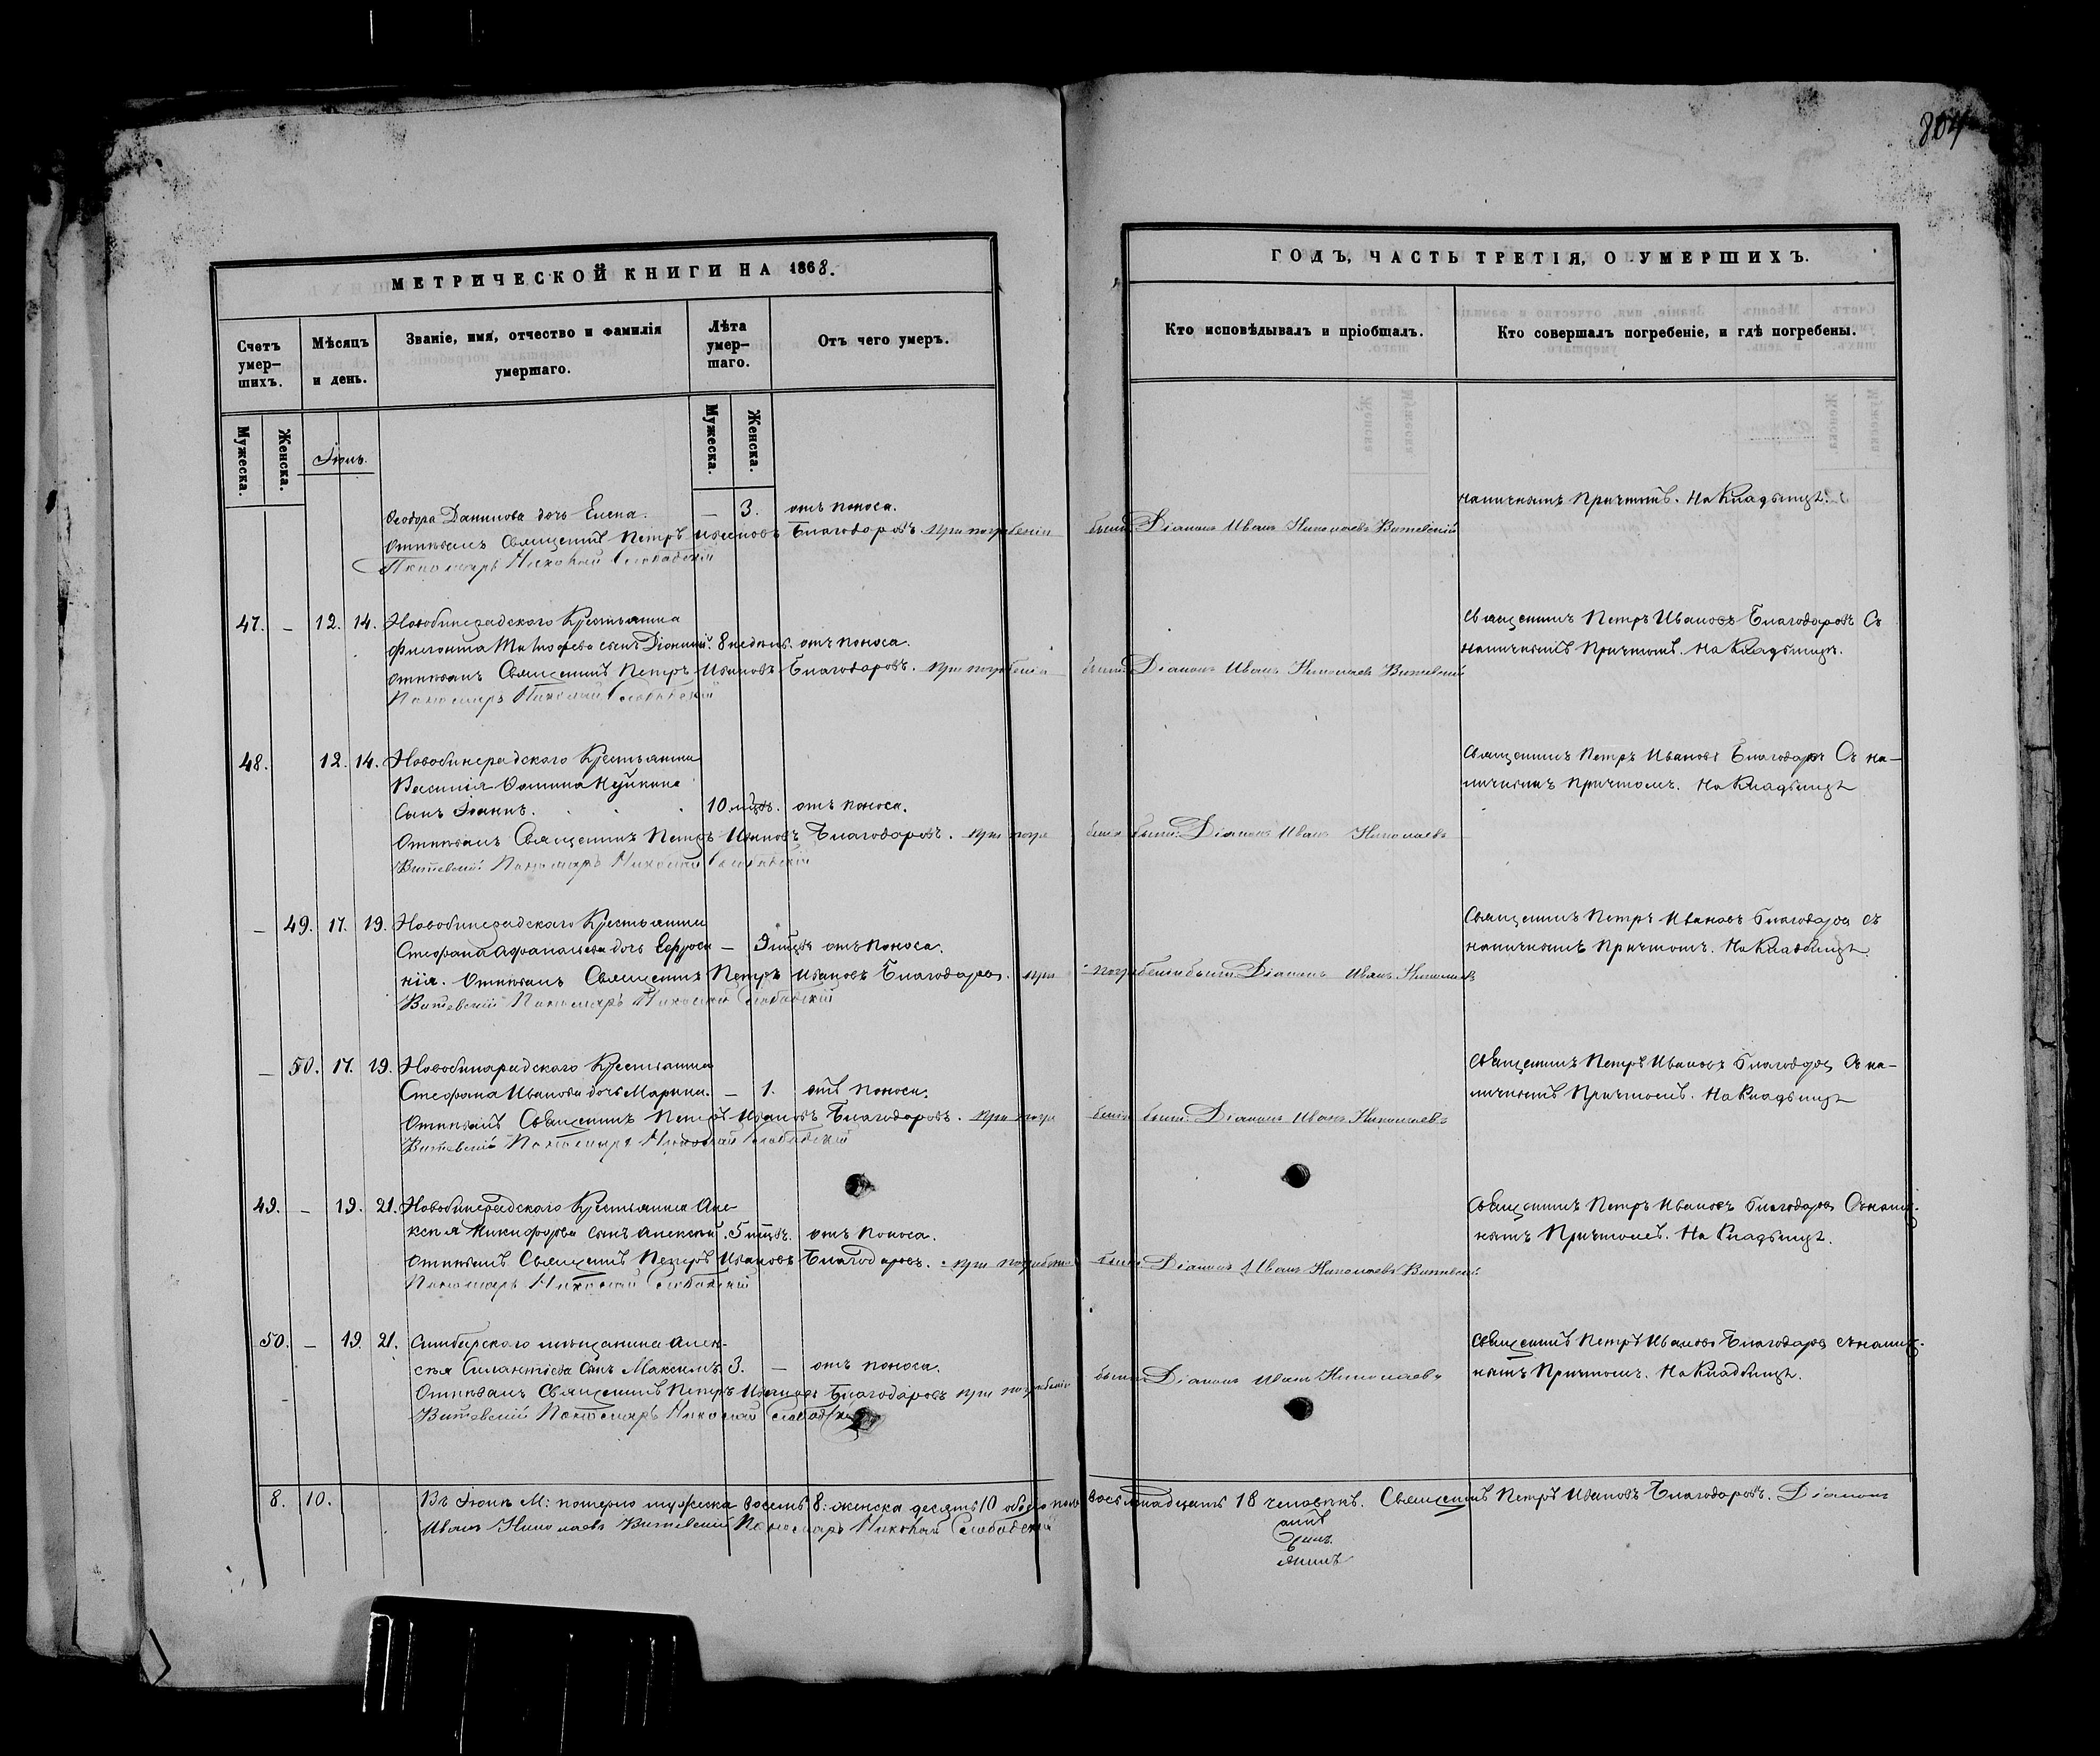 804
МЕТРИЧЕСКОЙ КНИГИ НА 1868.
Счетъ умер-шихъ.
Мѣсяцъ и день.
Званіе, имя, отчество и фамилія умершаго.
Лѣта умер-шаго.
Отъ чего умеръ.
Мужеска.
Женска.
Іюнь.
Мужеска.
Женска.
Ѳеодора Данилова дочь Елена. — 3. отъ поноса.
Отпѣвалъ Священникъ Петръ Ивановъ Благодаровъ. при погребеніи
Пономарь Николай Слободскій
47. — 12. 14. Крестьянина
сынъ Діонисій. 8 недѣль. отъ поноса.
отпѣвалъ Священникъ Петръ Ивановъ Благодаровъ. при погребеніи
Пономарь Николай Слободскій
48. 12. 14. Крестьянина
Василія
Сынъ Іоаннъ. 10 мѣсв. отъ поноса.
Отпѣвалъ Священникъ Петръ Ивановъ Благодаровъ. при погре
Витевскій Пономарь Николай Слободскій
— 49. 17. 19. Крестьянина
Стефана Афанасьева дочь Ефроси — 9 мѣсв. отъ поноса.
нія. Отпѣвалъ Священникъ Петръ Ивановъ Благодаровъ. при
Витевскій Пономарь Николай Слободскій
— 50. 17. 19. Крестьянина
Стефана Иванова дочь Марина. — 1. отъ поноса.
Отпѣвалъ Священникъ Петръ Ивановъ Благодаровъ. при погре
Витевскій Пономарь Николай Слободскій
49. — 19. 21. Крестьянина Але-
ксѣя Никифорова сынъ Алексѣй. 5 мѣсв. отъ поноса.
Отпѣвалъ Священникъ Петръ Ивановъ Благодаровъ. при погребеніи
Пономарь Николай Слободскій
50. — 19. 21. Симбирскаго мѣщанина Алек-
сѣя Силантіева сынъ Максимъ 3. — отъ поноса.
Отпѣвалъ Священникъ Петръ Ивановъ Благодаровъ при погребеніи
Витевскій Пономарь Николай Слободскій
8. 10. Въ Іюнѣ М: померло мужеска восемь 8: женска десять 10 обоего пола
Иванъ Николаевъ Витевскій Пономарь Николай Слободскій
ГОДЪ, ЧАСТЬ ТРЕТІЯ, О УМЕРШИХЪ.
Кто исповѣдывалъ и пріобщалъ.
Кто совершалъ погребеніе, и гдѣ погребены.
наличнымъ Причтомъ. На Кладбищѣ.
были: Діаконъ Иванъ Николаевъ Витевскій
Священникъ Петръ Ивановъ Благодаровъ Съ
наличнымъ Причтомъ. На Кладбищѣ.
были: Діаконъ Иванъ Николаевъ Витевскій
Священникъ Петръ Ивановъ Благодаровъ Съ на-
личнымъ Причтомъ. На Кладбищѣ
беніи были: Діаконъ Иванъ Николаевъ
Священникъ Петръ Ивановъ Благодаровъ съ
наличнымъ Причтомъ. На Кладбищѣ
погребеніи были: Діаконъ Иванъ Николаевъ
Священникъ Петръ Ивановъ Благодаровъ Съ на-
личнымъ Причтомъ. На Кладбищѣ
беніи были: Діаконъ Иванъ Николаевъ
Священникъ Петръ Ивановъ Благодаровъ Съ налич-
нымъ Причтомъ. На Кладбищѣ.
были Діаконъ Иванъ Николаевъ Витевскій
Священникъ Петръ Ивановъ Благодаровъ съ налич-
нымъ Причтомъ. На Кладбищѣ.
были: Діаконъ Иванъ Николаевъ
восемнадцать 18 человѣкъ. Священникъ Петръ Ивановъ Благодаровъ. Діаконъ